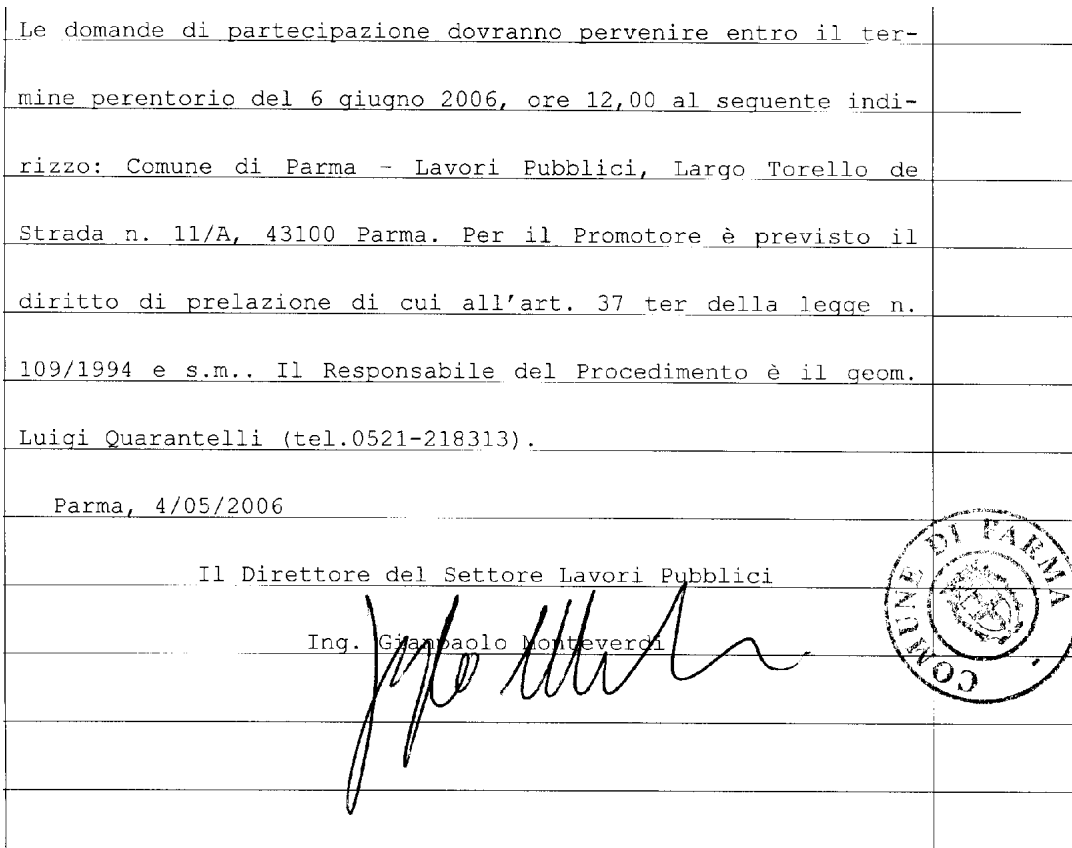 Le domande di partecipazione dovranno pervenire entro il ter-
mine perentorio del 6 giugno 2006, ore 12,00 al seguente indi-
rizzo: Comune di Parma - Lavori Pubblici, Largo Torello de
Strada n. 11/A, 43100 Parma. Per il Promotore è previsto il
diritto di prelazione di cui all'art. 37 ter della legge n.
109/1994 e s.m.. Il Responsabile del Procedimento è il geom.
Luigi Quarantelli (tel.0521-218313).
Parma, 4/05/2006
Il Direttore del Settore Lavori Pubblici
Ing. Gianpaolo Monteverdi
COMUNE DI PARMA